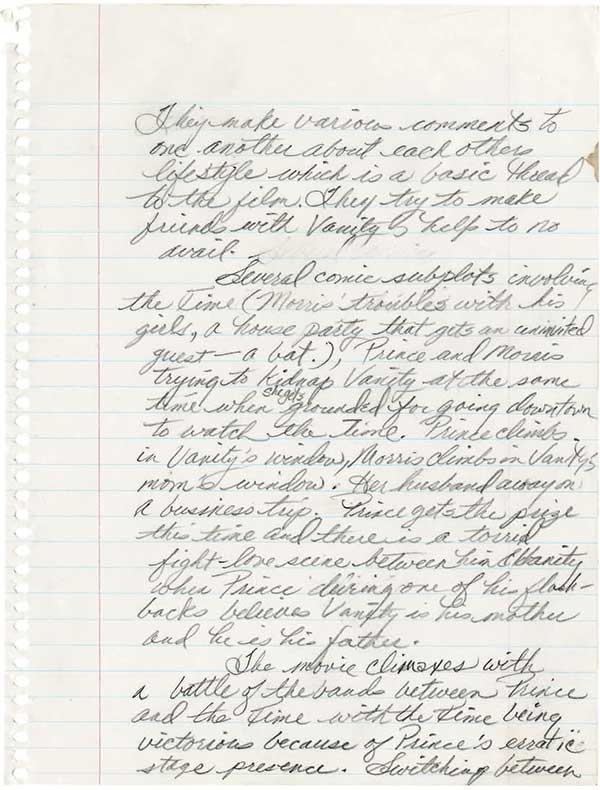 They make various comments to
one another about each others
lifestyle which is a basic thread
to the film. They try to make
friends with Vanity's help to no
avail.
Several comic subplots involving
the Time (Morris' troubles with his
girls, a house party that gets an uninvited
guest — a bat.), Prince and Morris
trying to kidnap Vanity at the same
she gets
time when grounded for going downtown
to watch the Time. Prince climbs
in Vanity's window, Morris climbs in Vanity's
mom's window. Her husband away on
a business trip. Prince gets the prize
this time and there is a torrid
fight-love scene between him & Vanity
when Prince during one of his flash-
backs believes Vanity is his mother
and he is his father.
The movie climaxes with
a battle of the bands between Prince
and the Time with the Time being
victorious because of Prince's erratic
stage presence. Switching between